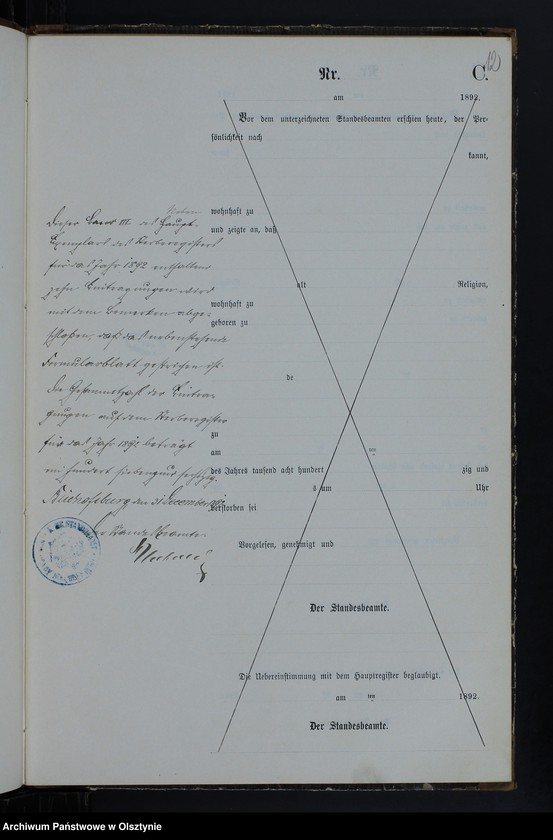 12
Nr.
C.
am 1892.
Vor dem unterzeichneten Standesbeamten erschien heute, der Per-
sönlichkeit nach
kannt,
wohnhaft zu
und zeigte an, daß
alt Religion,
wohnhaft zu
geboren zu
de
zu
am ten
des Jahres tausend acht hundert zig und
s am Uhr
verstorben sei
Vorgelesen, genehmigt und
Der Standesbeamte.
Die Uebereinstimmung mit dem Hauptregister beglaubigt.
am ten 1892.
Der Standesbeamte.
Neben
Dieser Band III. als Haupt-
Exemplars des Sterberegisters
für das Jahr 1892 enthaltend
zehn Eintragungen wird
mit dem Bemerken abge-
schlossen, daß das nebenstehende
Formularblatt gestrichen ist.
Die Gesammtzahl der Eintra-
gungen auf dem Sterberegister
für das Jahr 1892 beträgt
ein hundert sieben und sechzig.
Bischofsburg, den 31 December 1892
Der Standesbeamte.
Archiwum Państwowe w Olsztynie